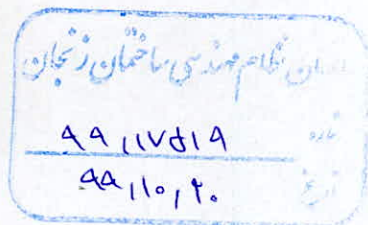 سازمان نظام مهندسی ساختمان زنجان
شماره ۹۹٫۱۱۷۵۱۹
تاریخ ۹۹٫۱۰٫۲۰